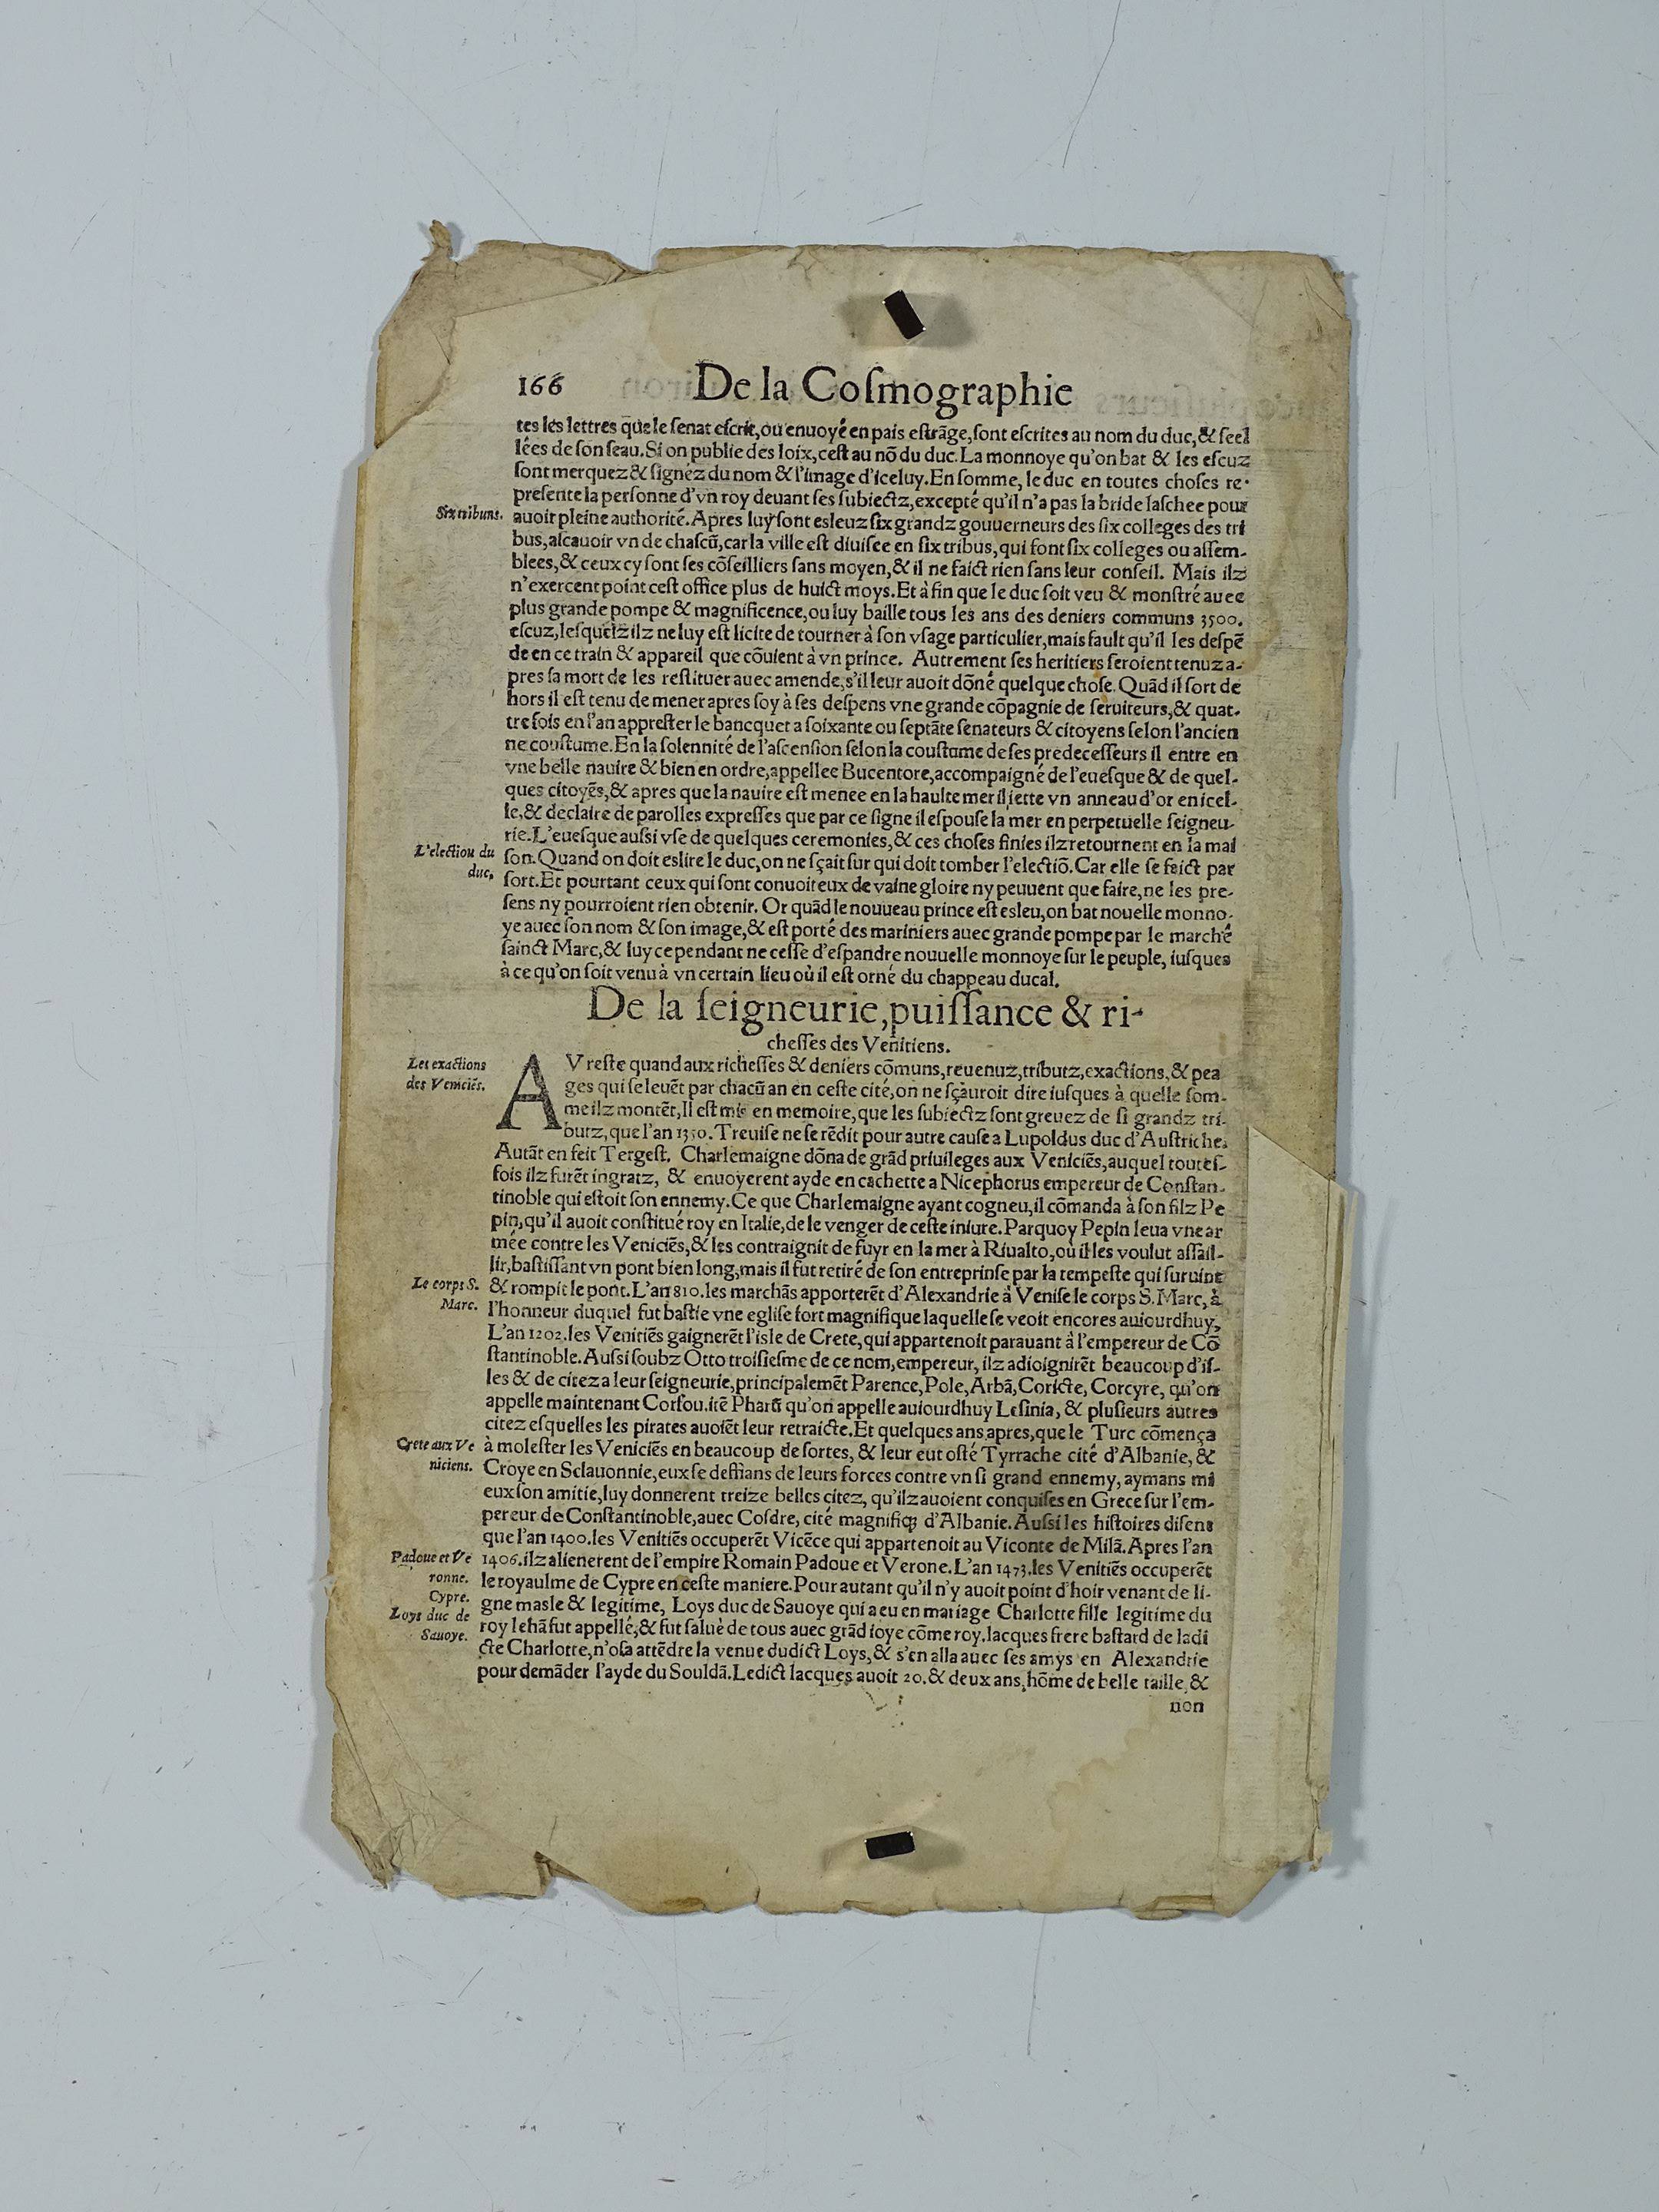 166 De la Coſmographie
tes les lettres que le ſenat eſcrit,ou enuoyé en pais eſtrãge,ſont eſcrites au nom du duc,& ſeel
lées de ſon ſeau.Si on publie des loix,ceſt au nõ du duc.La monnoye qu'on bat & les eſcuz
ſont merquez & ſignéz du nom & l'image d'iceluy.En ſomme, le duc en toutes choſes re-
preſente la perſonne d'vn roy deuant ſes ſubiectz,excepté qu'il n'a pas la bride laſchee pour
Six tribuns.
auoir pleine authorité.Apres luy ſont esleuz ſix grandz gouuerneurs des ſix colleges des tri
bus,aſcauoir vn de chaſcũ,car la ville eſt diuiſee en ſix tribus,qui font ſix colleges ou aſſem-
blees,& ceux cy ſont ſes cõſeilliers ſans moyen,& il ne faict rien ſans leur conſeil. Mais ilz
n'exercent point ceſt office plus de huict moys.Et à fin que le duc ſoit veu & monſtré auec
plus grande pompe & magnificence,ou luy baille tous les ans des deniers communs 3500.
eſcuz,leſquelz ilz ne luy eſt licite de tourner à ſon vſage particulier,mais fault qu'il les deſpẽ
de en ce train & appareil que cõuient à vn prince. Autrement ſes heritiers ſeroient tenuz a-
pres ſa mort de les reſtituer auec amende,s'il leur auoit dõné quelque choſe.Quãd il ſort de
hors il eſt tenu de mener apres ſoy à ſes deſpens vne grande cõpagnie de ſeruiteurs,& quat-
tre fois en l'an appreſter le bancquet a ſoixante ou ſeptãte ſenateurs & citoyens ſelon l'ancien
ne couſtume.En la ſolennité de l'aſcenſion ſelon la couſtume de ſes predeceſſeurs il entre en
vne belle nauire & bien en ordre,appellee Bucentore,accompaigné de l'eueſque & de quel-
ques citoyẽs,& apres que la nauire eſt menee en la haulte mer il iette vn anneau d'or en icel-
le,& declaire de parolles expreſſes que par ce ſigne il eſpouſe la mer en perpetuelle ſeigneu-
rie.L'eueſque auſsi vſe de quelques ceremonies,& ces choſes finies ilz retournent en la mai
L'election du
duc.
ſon.Quand on doit eslire le duc,on ne ſçait ſur qui doit tomber l'electiõ.Car elle ſe faict par
ſort.Et pourtant ceux qui ſont conuoiteux de vaine gloire ny peuuent que faire,ne les pre-
ſens ny pourroient rien obtenir. Or quãd le nouueau prince eſt esleu,on bat nouelle monno-
ye auec ſon nom & ſon image,& eſt porté des mariniers auec grande pompe par le marché
ſainct Marc,& luy cependant ne ceſſe d'eſpandre nouuelle monnoye ſur le peuple, iuſques
à ce qu'on ſoit venu à vn certain lieu où il eſt orné du chappeau ducal.
De la ſeigneurie,puiſſance & ri-
cheſſes des Venitiens.
Les exactions
des Veniciẽs.
AV reſte quand aux richeſſes & deniers cõmuns,reuenuz,tributz,exactions,& pea
ges qui ſe leuẽt par chacũ an en ceſte cité,on ne ſçauroit dire iuſques à quelle ſom-
me ilz montẽt,Il eſt mis en memoire,que les ſubiectz ſont greuez de ſi grandz tri-
butz,que l'an 1350.Treuiſe ne ſe rẽdit pour autre cauſe a Lupoldus duc d'Auſtriche.
Autãt en feit Tergeſt. Charlemaigne dõna de grãd priuileges aux Veniciẽs,auquel toutes-
fois ilz furẽt ingratz, & enuoyerent ayde en cachette a Nicephorus empereur de Conſtan-
tinoble qui eſtoit ſon ennemy.Ce que Charlemaigne ayant cogneu,il cõmanda à ſon filz Pe
pin,qu'il auoit conſtitué roy en Italie,de le venger de ceſte iniure.Parquoy Pepin leua vne ar
mée contre les Veniciẽs,& les contraignit de fuyr en la mer à Riualto,où il les voulut aſſail-
lir,baſtiſſant vn pont bien long,mais il fut retiré de ſon entreprinſe par la tempeſte qui ſuruint
Le corps S.
Marc.
& rompit le pont.L'an 810.les marchãs apporterẽt d'Alexandrie à Veniſe le corps S.Marc, à
l'honneur duquel fut baſtie vne egliſe fort magnifique laquelle ſe veoit encores auiourdhuy,
L'an 1202.les Venitiẽs gaignerẽt l'isle de Crete,qui appartenoit parauant à l'empereur de Cõ
ſtantinoble.Auſsi ſoubz Otto troiſieſme de ce nom,empereur, ilz adioignirẽt beaucoup d'iſ-
les & de citez a leur ſeigneurie,principalemẽt Parence,Pole,Arbã,Coricte,Corcyre, qu'on
appelle maintenant Corfou.itẽ Pharũ qu'on appelle auiourdhuy Leſinia, & pluſieurs autres
citez eſquelles les pirates auoiẽt leur retraicte.Et quelques ans apres,que le Turc cõmença
Crete aux Ve
niciens.
à moleſter les Veniciẽs en beaucoup de ſortes, & leur eut oſté Tyrrache cité d'Albanie, &
Croye en Sclauonnie,eux ſe deffians de leurs forces contre vn ſi grand ennemy, aymans mi
eux ſon amitie,luy donnerent treize belles citez, qu'ilz auoient conquiſes en Grece ſur l'em-
pereur de Conſtantinoble,auec Coſdre, cité magnifiq; d'Albanie.Auſsi les hiſtoires diſent
que l'an 1400.les Venitiẽs occuperẽt Vicẽce qui appartenoit au Viconte de Milã.Apres l'an
Padoue et Ve
ronne.
1406.ilz alienerent de l'empire Romain Padoue et Verone.L'an 1473.les Venitiẽs occuperẽt
le royaulme de Cypre en ceſte maniere.Pour autant qu'il n'y auoit point d'hoir venant de li-
Cypre.
Loys duc de
Sauoye.
gne masle & legitime, Loys duc de Sauoye qui a eu en mariage Charlotte fille legitime du
roy Iehã fut appellé,& fut ſalué de tous auec grãd ioye cõme roy.Iacques frere baſtard de ladi
cte Charlotte,n'oſa attẽdre la venue dudict Loys,& s'en alla auec ſes amys en Alexandrie
pour demãder l'ayde du Souldã.Ledict Iacques auoit 20.& deux ans,hõme de belle taille,&
non